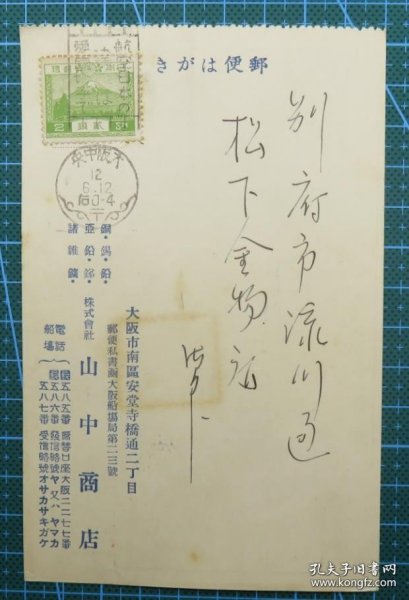 郵便はがき
別府市流川通
松下金物店
大阪中央
12
6.12
后0-4
貳錢
大阪市南區安堂寺橋通二丁目
郵便私書凾大阪船場局第二三號
株式會社 山中商店
銅・錫・鉛・
亞鉛・銻・
諸雜鑛・
電話
船場
五八五番
五八六番
五八七番
振替口座大阪二二七七番
發信略號ヤマ又ハヤマカ
受信略號オサカサキガケ
孔夫子旧书网
www.kongfz.com